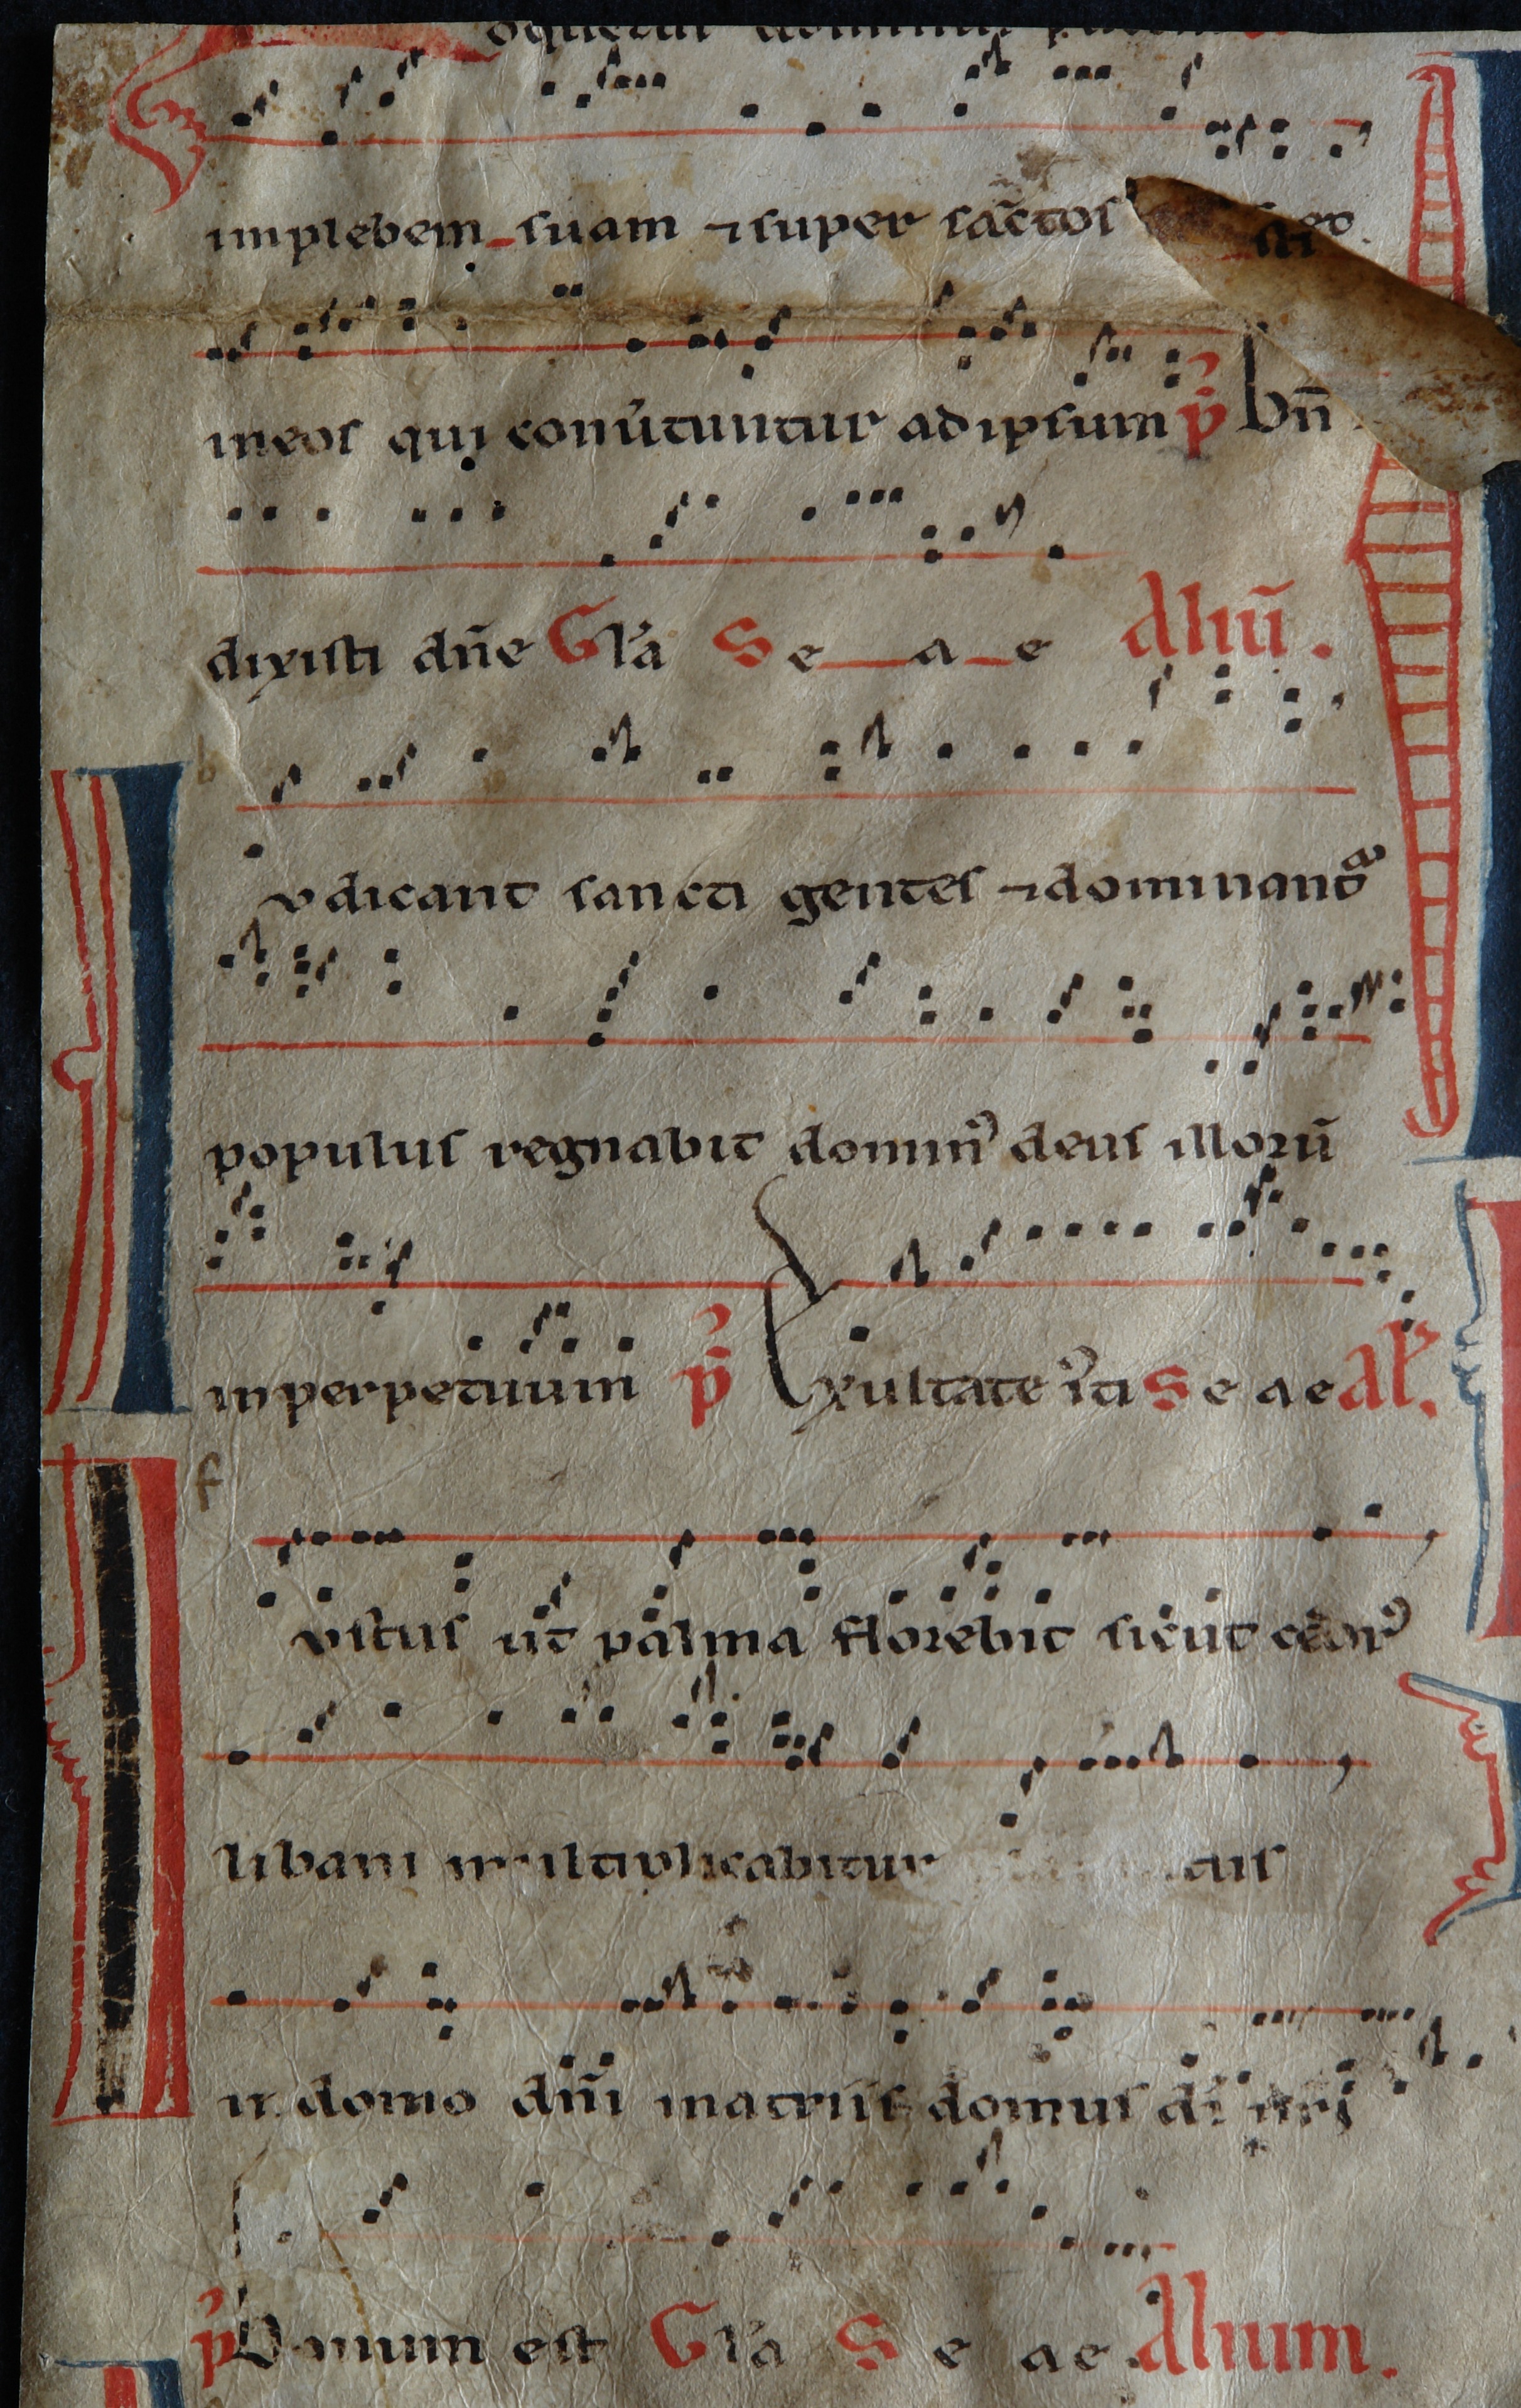 oquetur dominus
in plebem suam ⁊ super sāctos
meos qui conũtuntur ad ipsum p̄ bn̄
dixisti dn̄e Gl'a S e a e Aliū.
b
vdicant sancti gentes ⁊ dominant
populus regnabit domin᾽ deus illorū
in perpetuum p̄ Exultate iᷤti S e a e Al'.
f
vstus ut palma florebit sicut cedr᾽
libani multiplicabitur
in domo dn̄i in atriis domus di nr̄i
p̄ Bonum est Gl'a S e a e Alium.